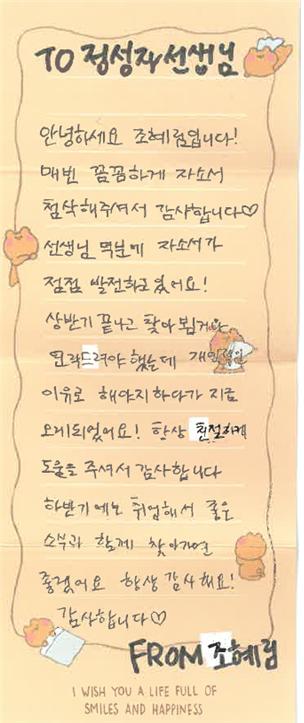 TO 정성자선생님
안녕하세요 조혜림입니다!
매번 꼼꼼하게 자소서
첨삭해주셔서 감사합니다♡
선생님 덕분에 자소서가
점점 발전하고있어요!
상반기 끝나고 찾아 뵙거나
연락드려야 했는데 개인적인
이유로 해야지하다가 지금
오게되었어요! 항상 친절하게
도움을 주셔서 감사합니다
하반기에는 취업해서 좋은
소식과 함께 찾아가면
좋겠어요 항상 감사해요!
감사합니다♡
FROM 조혜림
I WISH YOU A LIFE FULL OF
SMILES AND HAPPINESS